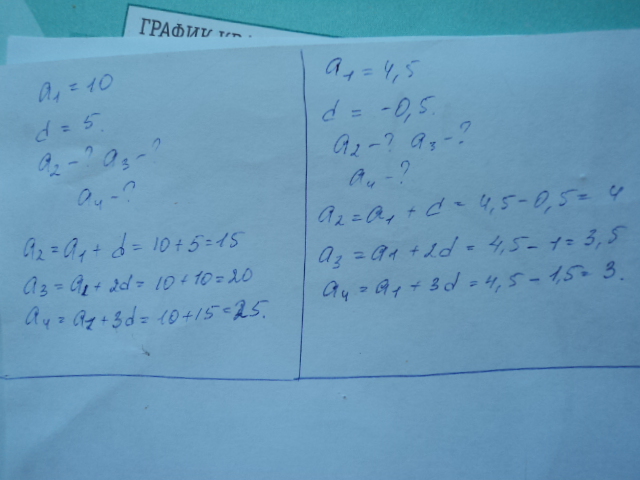 ГРАФИК
a₁ = 10
d = 5.
a₂ - ? a₃ - ?
a₄ - ?
a₂ = a₁ + d = 10 + 5 = 15
a₃ = a₁ + 2d = 10 + 10 = 20
a₄ = a₁ + 3d = 10 + 15 = 25.
a₁ = 4,5
d = -0,5.
a₂ - ? a₃ - ?
a₄ - ?
a₂ = a₁ + d = 4,5 - 0,5 = 4
a₃ = a1 + 2d = 4,5 - 1 = 3,5
a₄ = a₁ + 3d = 4,5 - 1,5 = 3.